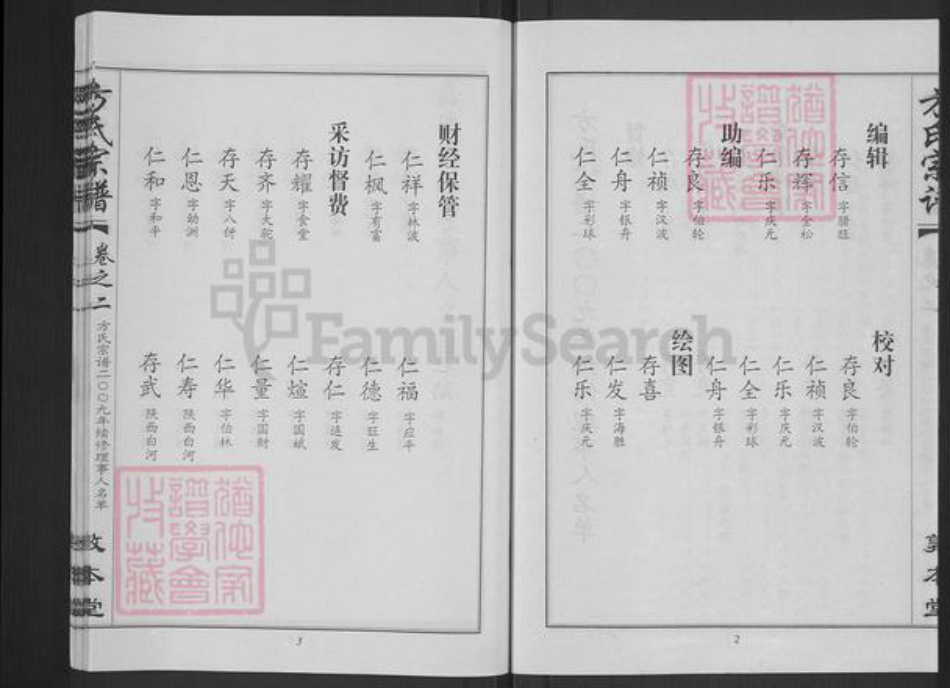 编辑
存信 字腊旺
存辉 字金松
仁乐 字庆元
助编
存良 字伯轮
仁祯 字汉波
仁舟 字银舟
仁全 字彩球
校对
存良 字伯轮
仁祯 字汉波
仁乐 字庆元
仁全 字彩球
仁舟 字银舟
绘图
存喜
仁发 字海胜
仁乐 字庆元
2
财经保管
仁祥 字林波
仁枫 字有富
采访督费
存耀 字食堂
存齐 字大驼
存天 字八仔
仁恩 字幼洲
仁和 字和平
仁福 字应平
仁德 字旺生
存仁 字连发
仁煊 字国斌
仁量 字国财
仁华 字伯林
仁寿 陕西白河
存武 陕西白河
3
方氏宗谱
卷之二
方氏宗谱二〇〇九年续修理事人名单
敦本堂
FamilySearch